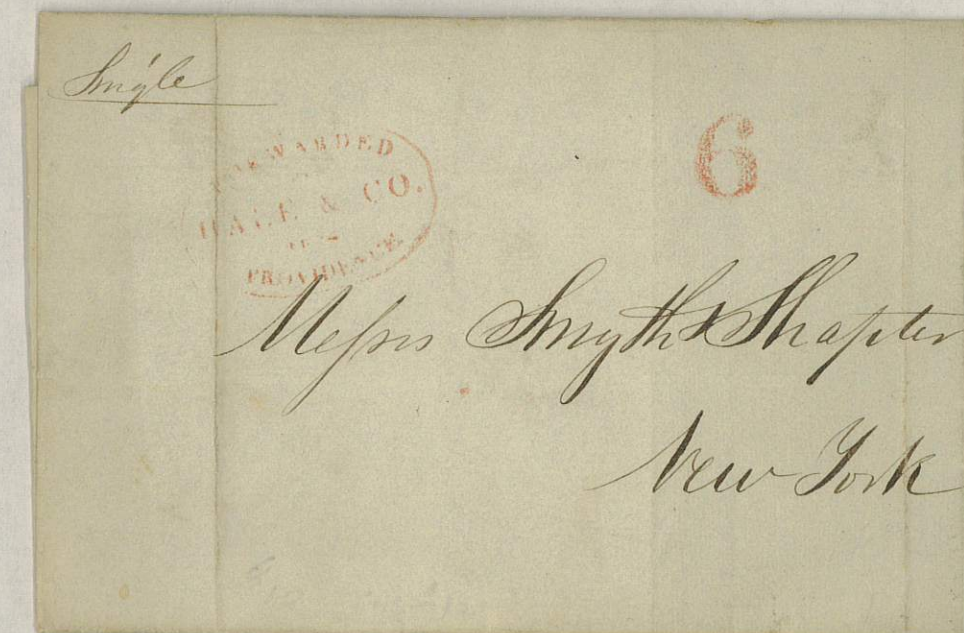 Single
FORWARDED
HALE & CO.
PROVIDENCE.
6
Messrs Smyth & Shapter
New York